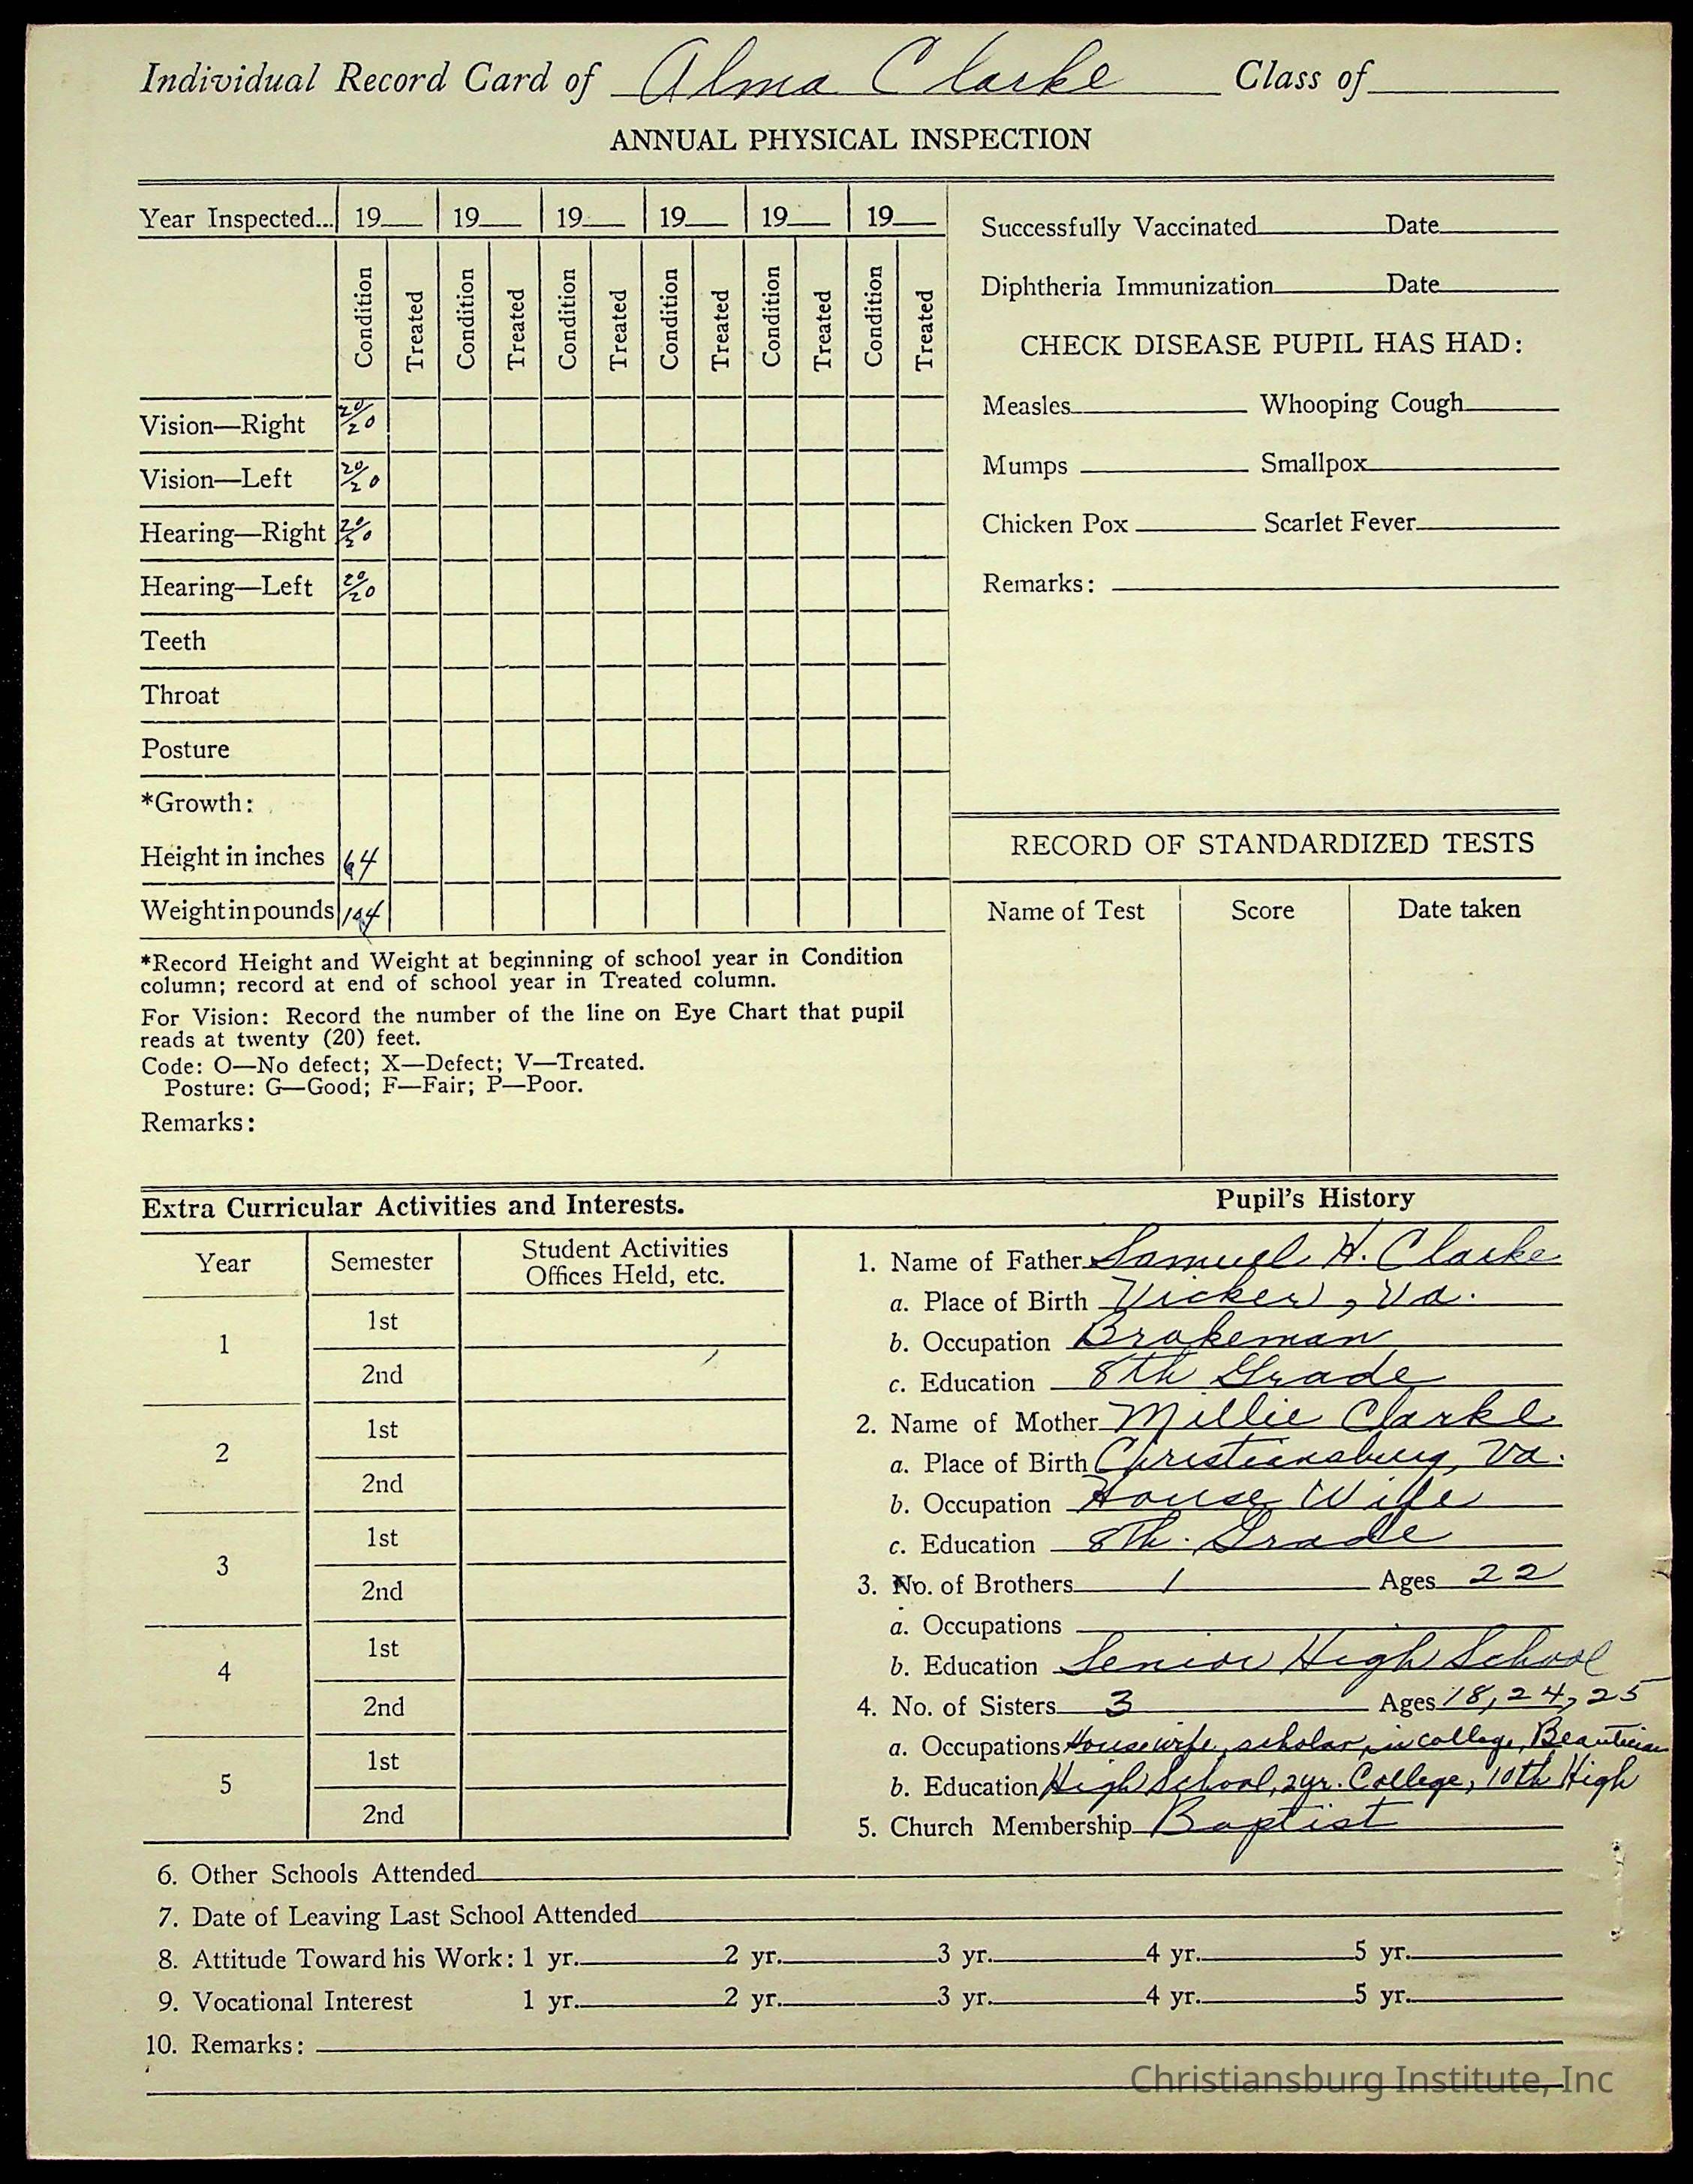 Individual Record Card of Alma Clarke Class of
ANNUAL PHYSICAL INSPECTION
Year Inspected... 19 19 19 19 19 19
Condition Treated Condition Treated Condition Treated Condition Treated Condition Treated Condition Treated
Vision—Right 20/20
Vision—Left 20/20
Hearing—Right 20/20
Hearing—Left 20/20
Teeth
Throat
Posture
*Growth:
Height in inches 64
Weight in pounds
*Record Height and Weight at beginning of school year in Condition
column; record at end of school year in Treated column.
For Vision: Record the number of the line on Eye Chart that pupil
reads at twenty (20) feet.
Code: O—No defect; X—Defect; V—Treated.
Posture: G—Good; F—Fair; P—Poor.
Remarks:
Successfully Vaccinated Date
Diphtheria Immunization Date
CHECK DISEASE PUPIL HAS HAD:
Measles Whooping Cough
Mumps Smallpox
Chicken Pox Scarlet Fever
Remarks:
RECORD OF STANDARDIZED TESTS
Name of Test Score Date taken
Extra Curricular Activities and Interests.
Year Semester Student Activities
Offices Held, etc.
1 1st
2nd
2 1st
2nd
3 1st
2nd
4 1st
2nd
5 1st
2nd
Pupil's History
1. Name of Father Samuel H. Clarke
a. Place of Birth Vicker, Va.
b. Occupation Brakeman
c. Education 8th Grade
2. Name of Mother Millie Clarke
a. Place of Birth Christiansburg, Va.
b. Occupation House Wife
c. Education 8th. Grade
3. No. of Brothers 1 Ages 22
a. Occupations
b. Education Senior High School
4. No. of Sisters 3 Ages 18, 24, 25
a. Occupations Housewife, scholar in college, Beautician
b. Education High School, 2yr. College, 10th High
5. Church Membership Baptist
6. Other Schools Attended
7. Date of Leaving Last School Attended
8. Attitude Toward his Work: 1 yr. 2 yr. 3 yr. 4 yr. 5 yr.
9. Vocational Interest 1 yr. 2 yr. 3 yr. 4 yr. 5 yr.
10. Remarks:
Christiansburg Institute, Inc